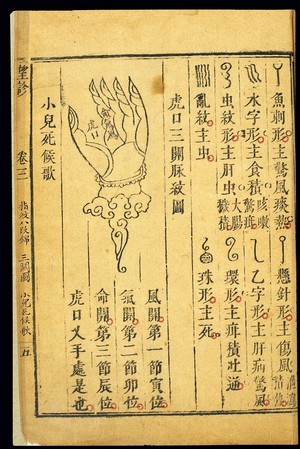 魚刺形主驚風痰熱
懸針形主傷風
水字形主食積咳嗽驚疳
乙字形主肝病驚風
虫紋形主肝虫大腸穢積
環形主疳積吐逆
亂紋主虫
珠形主死
虎口三關脉紋圖
虎口
風關第一節寅位
氣關第二節卯位
命關第三節辰位
虎口叉手處是也
小兒死候歌
望診
卷三
指紋八段錦 三關圖 小兒死候歌